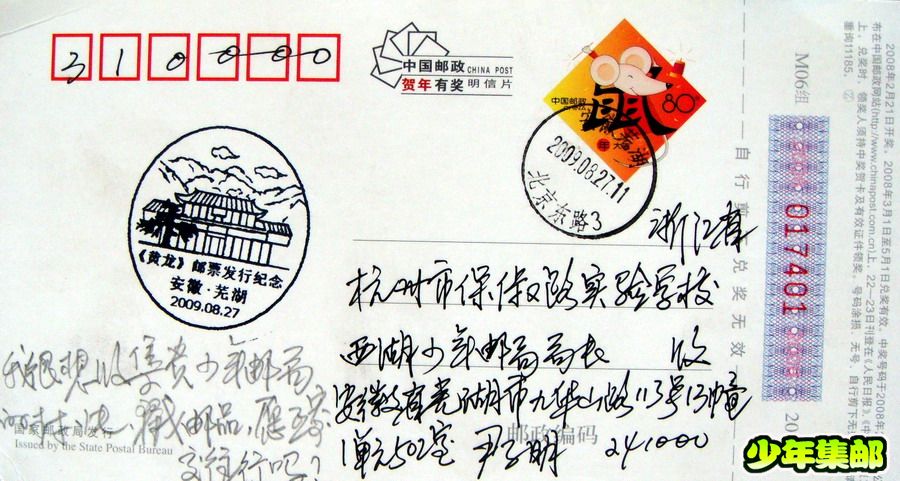 310000
中国邮政 CHINA POST
贺年有奖 明信片
中国邮政
CHINA
80
鼠
芜湖
2009.08.27.11
北京东路3
《黄龙》邮票发行纪念
安徽·芜湖
2009.08.27
浙江省
杭州市保俶路实验学校
西湖少年邮局局长 收
安徽省芜湖市九华山路113号13幢
1单元502室 241000
邮政编码
我很想收集贵少年邮局
国家邮政局发行
Issued by the State Postal Bureau
M06组
017401
自行剪下无兑奖无效
2008年2月21日开奖。2008年3月1日至5月1日兑奖有效,中奖号码于2008年2
布在中国邮政网站(http://www.chinapost.com.cn)上,22—23日刊登在《人民日报》《中
上,兑奖时,领奖人须持中奖贺卡及有效证件领奖,号码涂损无号,自行剪下无
查询11185。
少年集邮